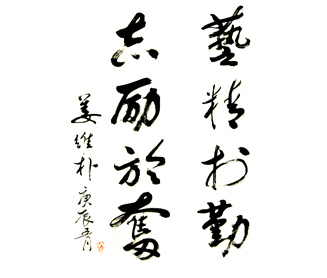 藝精於勤
志励於奮
姜維朴庚辰春月